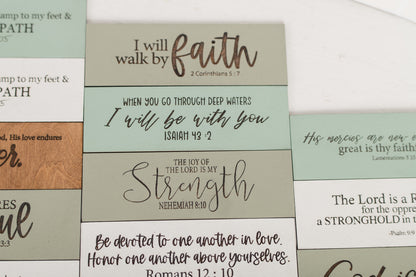 amp to my feet &
PATH
amp to my feet &
PATH
od, His love endures
er.
RES
oul
3:3
I will
walk by faith
2 Corinthians 5 : 7
WHEN YOU GO THROUGH DEEP WATERS
I will be with you
ISAIAH 43 :2
THE JOY OF
THE LORD IS MY
Strength
NEHEMIAH 8:10
Be devoted to one another in love.
Honor one another above yourselves.
Romans 12 : 10
His mercies are new e
great is thy faithf
Lamentations 3
The Lord is a R
for the oppre
a STRONGHOLD in t
-Psalm 9:9
God is